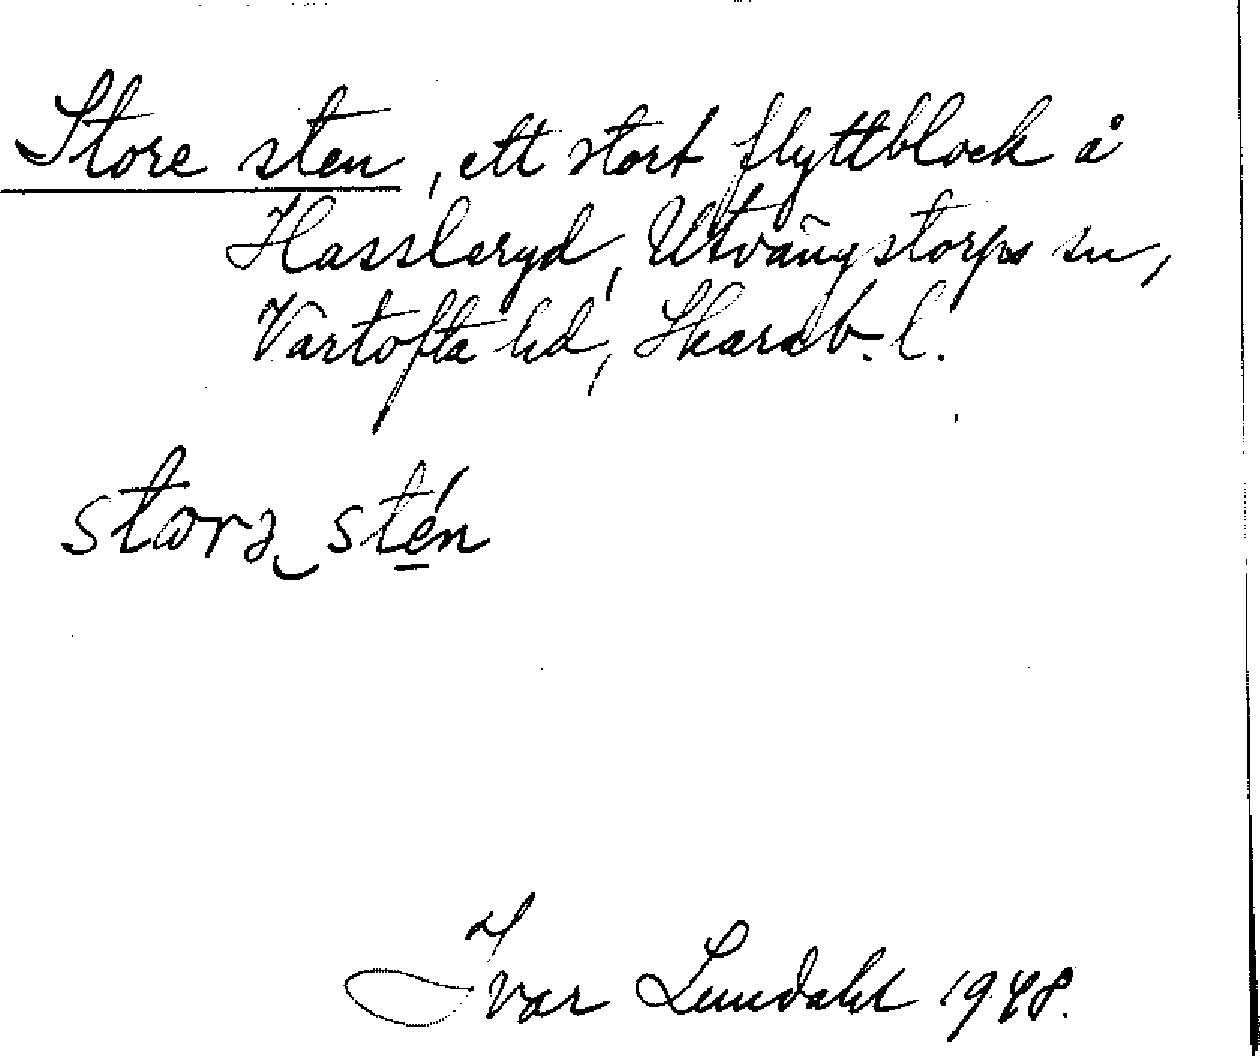 Store sten, ett stort flyttblock å
Hassleryd, Utvängstorps sn,
Vartofta hd, Skarab. l.
stωrə‿stén
Ivar Lundahl 1948.